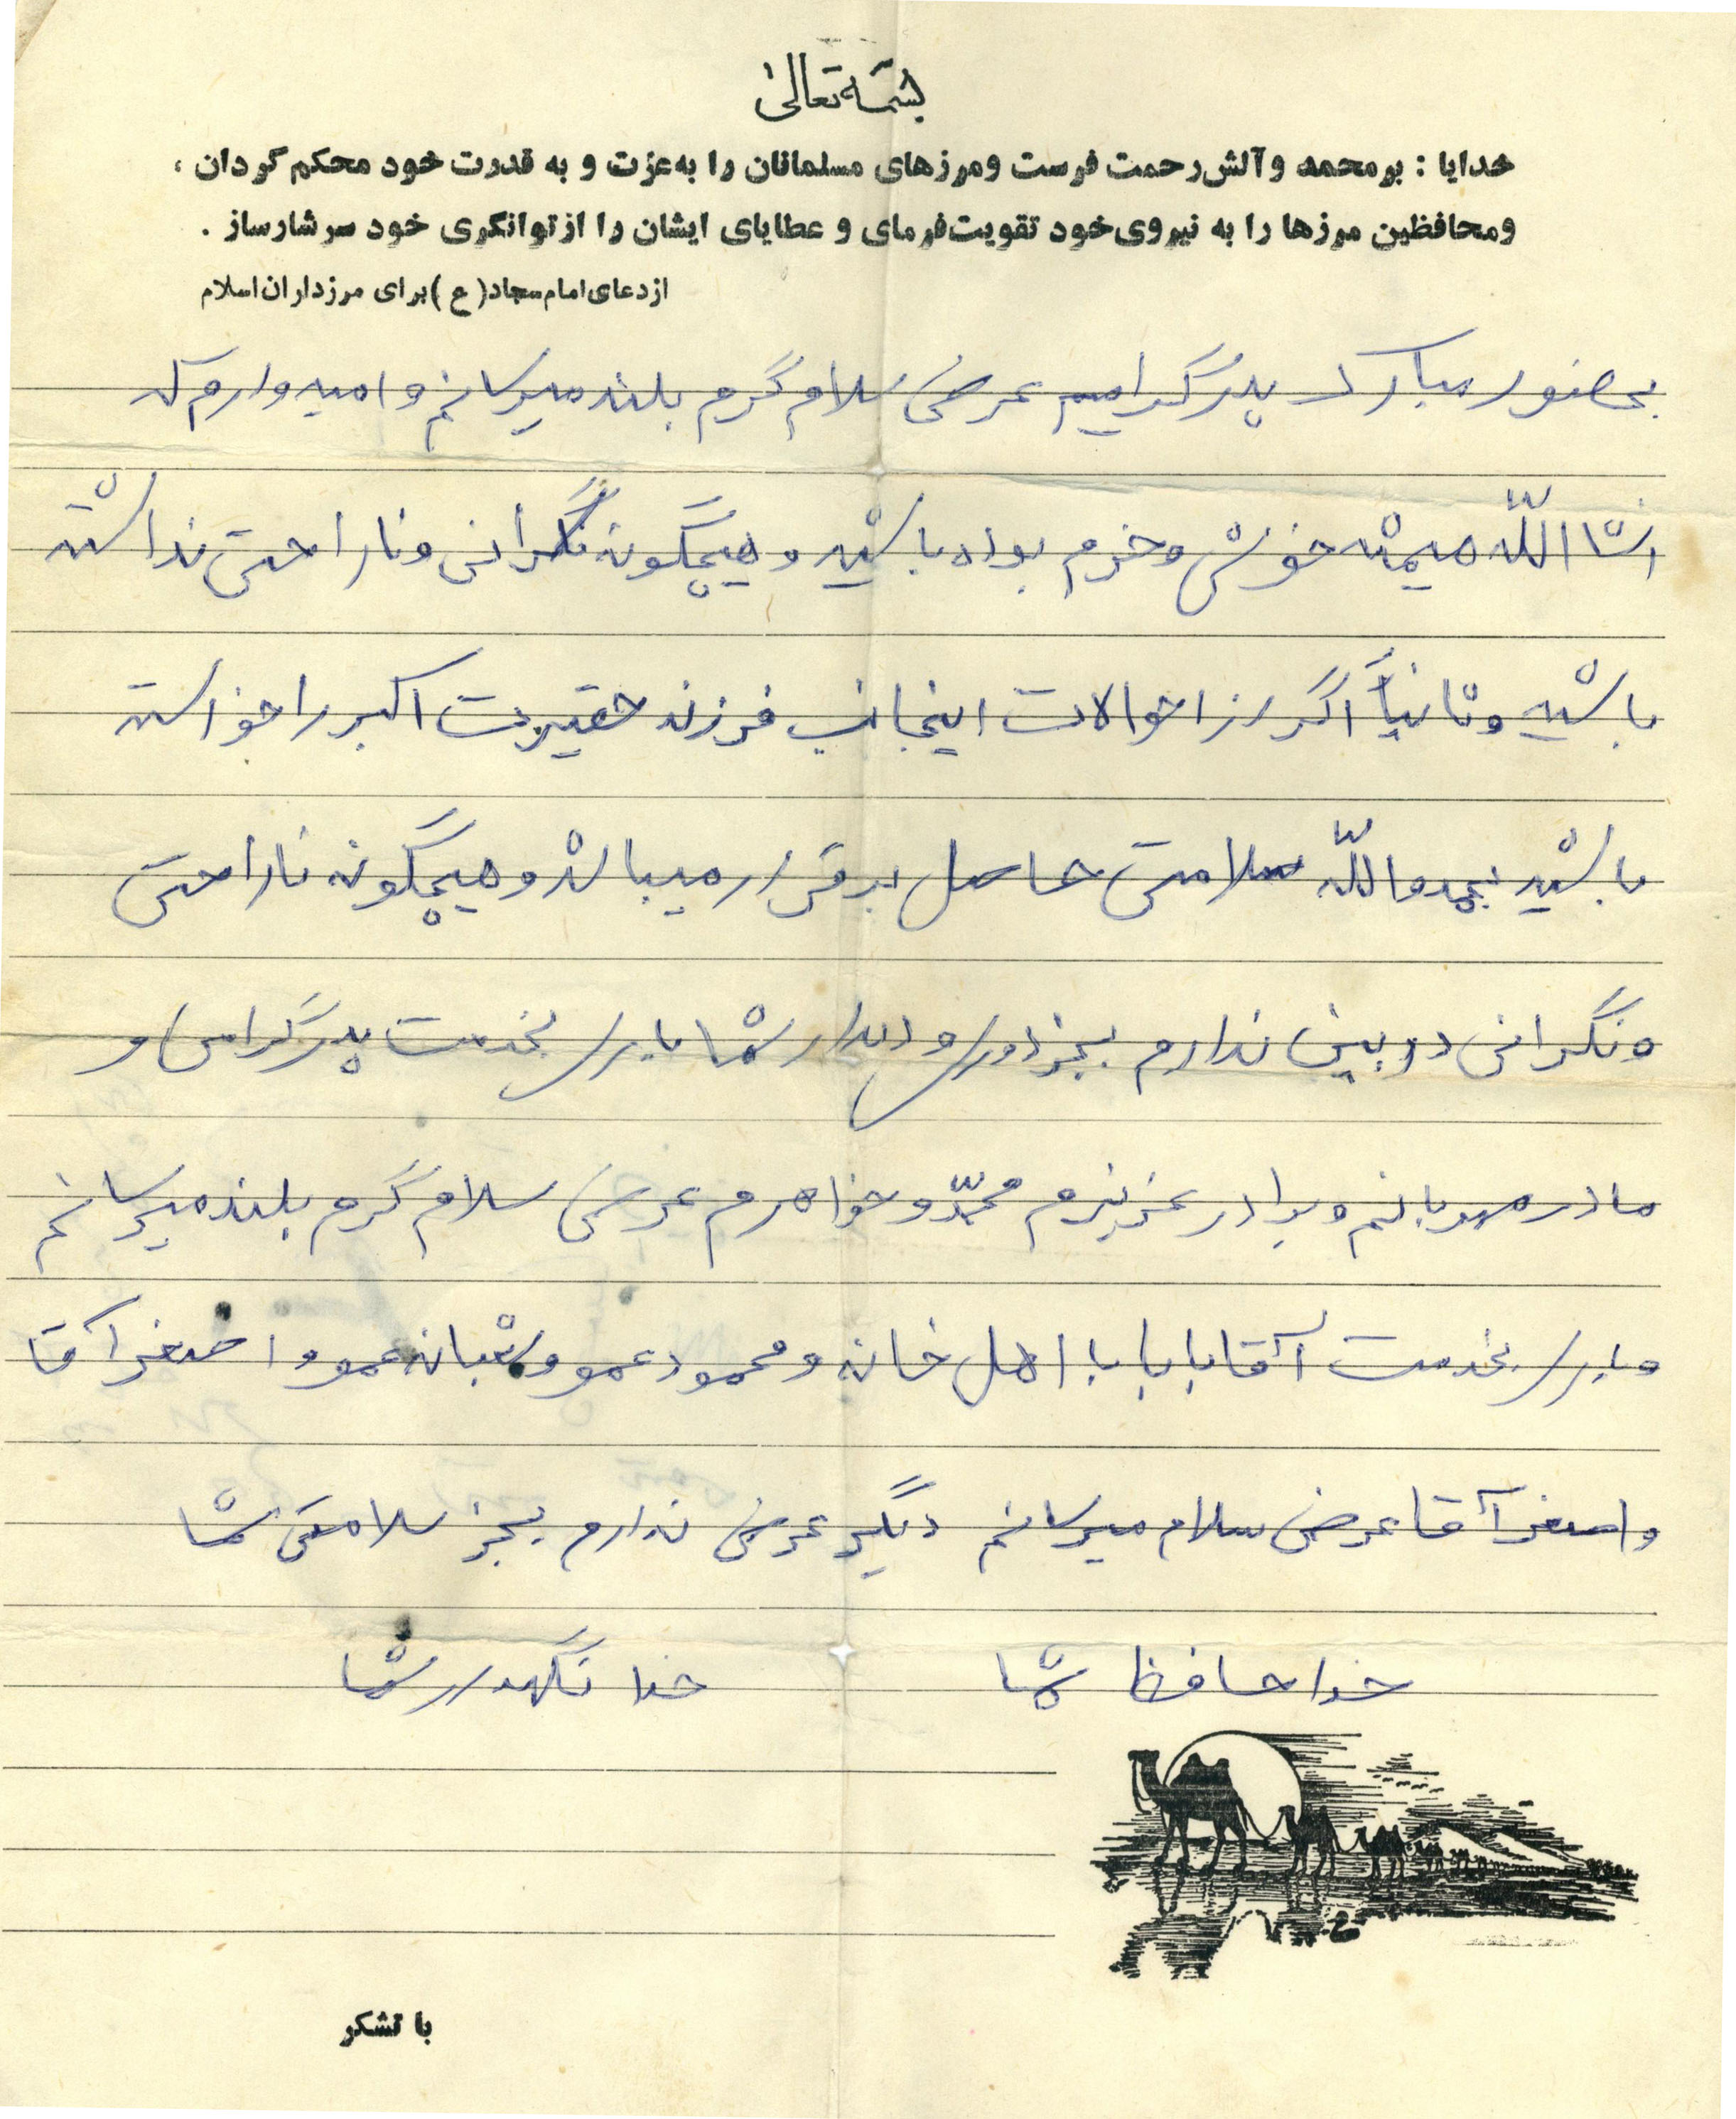 بسمه تعالی
خدایا : بر محمد و آلش رحمت فرست و مرزهای مسلمانان را به عزت و به قدرت خود محکم گردان ،
و محافظین مرزها را به نیروی خود تقویت فرمای و عطایای ایشان را از توانگری خود سرشار ساز .
از دعای امام سجاد ( ع ) برای مرزداران اسلام
بحضور مبارک پدر گرامیم عرض سلام گرم بلند میرسانم و امیدوارم که
انشااللّه همیشه خوش و خرم بوده باشید و هیچگونه نگرانی و ناراحتی نداشته
باشید و ثانیاً اگر از احوالات اینجانب فرزند حقیرت اکبر را خواسته
باشید بحمدواللّه سلامتی حاصل برقرار میباشد و هیچگونه ناراحتی
و نگرانی در بین ندارم بجز دوری و دیدار شما باری بخدمت پدر گرامی و
مادر مهربانم و برادر عزیزم محمّد و خواهرم عرض سلام گرم بلند میرسانم
و باری بخدمت آقابابا با اهل خانه و محمود عمو و شبانه عمو و اصغر آقا
و اصغر آقا عرض سلام میرسانم دیگر عرض ندارم بجز سلامتی شما
خدا حافظ شما خدا نگهدار شما
با تشکر